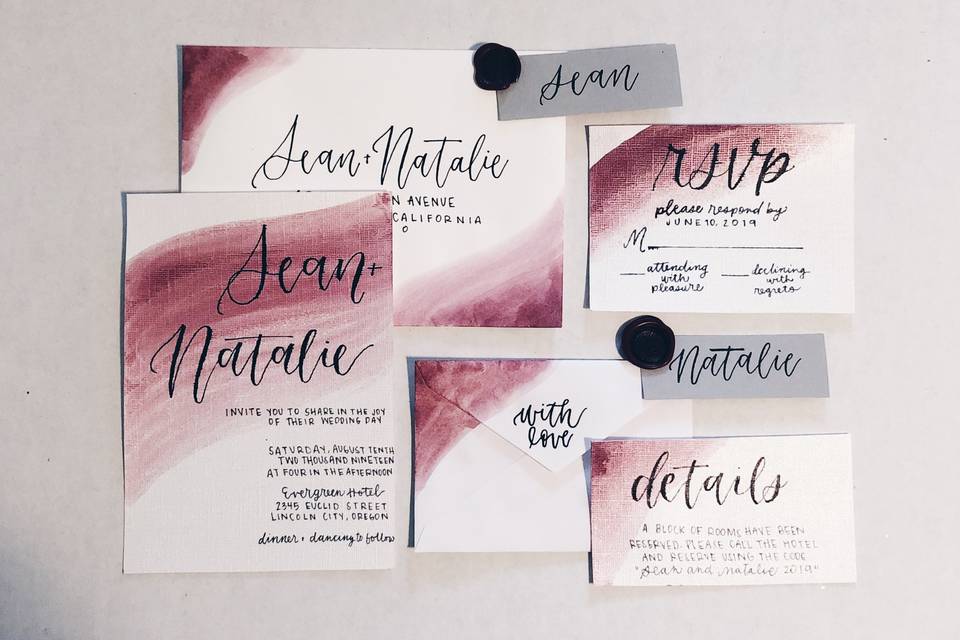 Sean
Sean + Natalie
N AVENUE
CALIFORNIA
rsvp
please respond by
JUNE 10, 2019
M
attending
with
pleasure
declining
with
regrets
Sean +
Natalie
INVITE YOU TO SHARE IN THE JOY
OF THEIR WEDDING DAY
SATURDAY, AUGUST TENTH
TWO THOUSAND NINETEEN
AT FOUR IN THE AFTERNOON
Evergreen Hotel
2345 EUCLID STREET
LINCOLN CITY, OREGON
dinner + dancing to follow
with
love
Natalie
details
A BLOCK OF ROOMS HAVE BEEN
RESERVED. PLEASE CALL THE HOTEL
AND RESERVE USING THE CODE
"Sean and Natalie 2019"